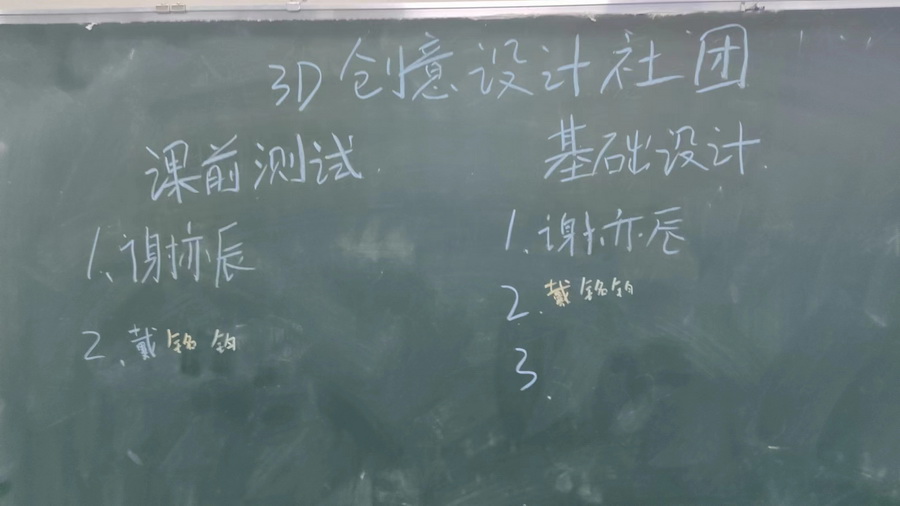 3D创意设计社团
课前测试.
1.谢亦辰
2.戴铭钧
基础设计.
1.谢亦辰
2.戴铭钧
3.